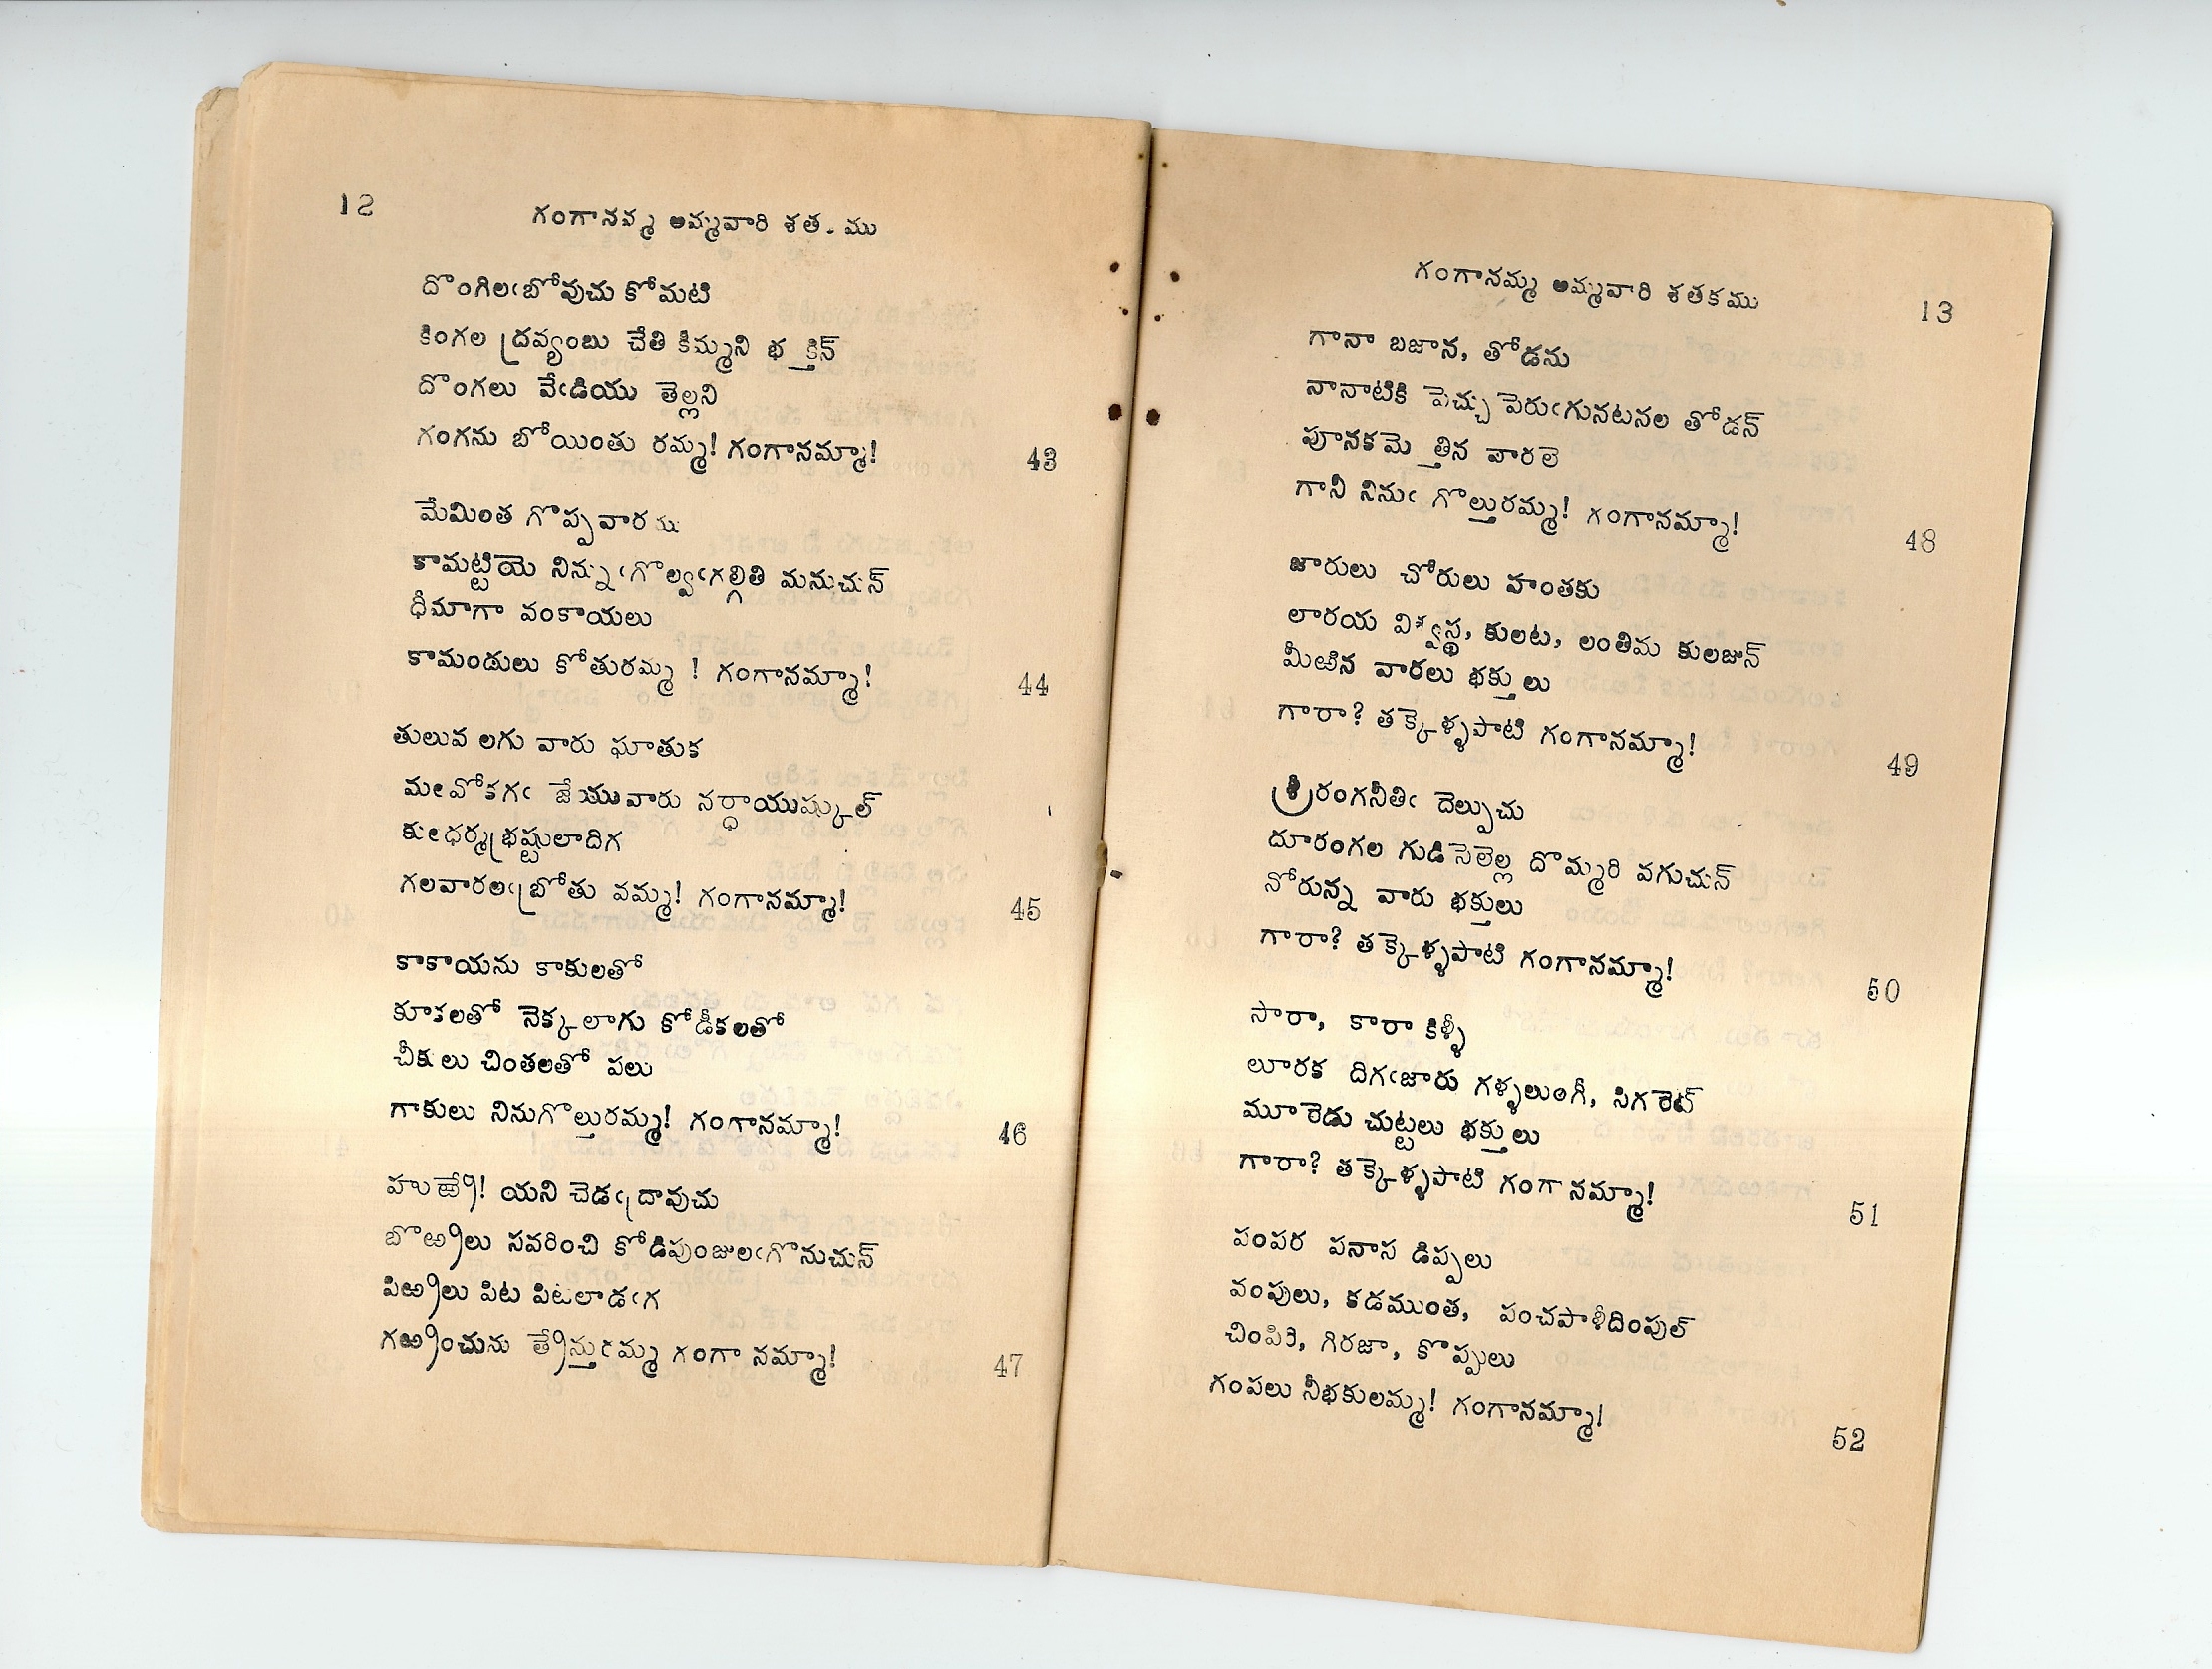 12
గంగానమ్మ అమ్మవారి శత. ము
దొంగిలఁబోవుచు కోమటి
కింగల ద్రవ్యంబు చేతి కిమ్మని భక్తిన్
దొంగలు వేఁడియు తెల్లని
గంగను బోయింతు రమ్మ! గంగానమ్మా!
43
మేమింత గొప్పవారము
కామట్టియె నిన్నుఁగొల్వఁగల్గితి మనుచున్
ధీమాగా వంకాయలు
కామందులు కోతురమ్మ ! గంగానమ్మా!
44
తులువ లగు వారు ఘాతుక
మలవోకగఁ జేయువారు నర్ధాయుష్కుల్
కులధర్మభ్రష్టులాదిగ
గలవారలఁబ్రోతు వమ్మ! గంగానమ్మా!
45
కాకాయను కాకులతో
కూకలతో నెక్కలాగు కోడీకలతో
చీకులు చింతలతో పలు
గాకులు నినుగొల్తురమ్మ! గంగానమ్మా!
46
హుఱ్ఱే! యని చెడఁద్రావుచు
బొఱ్ఱలు సవరించి కోడిపుంజులఁగొనుచున్
పిఱ్ఱలు పిట పిటలాడఁగ
గఱ్ఱించును త్రేన్తురమ్మ గంగా నమ్మా!
47
గంగానమ్మ అమ్మవారి శతకము
13
గానా బజాన, తోడను
నానాటికి పెచ్చు పెరుఁగునటనల తోడన్
పూనకమెత్తిన వారలె
గానీ నినుఁ గొల్తురమ్మ! గంగానమ్మా!
48
జారులు చోరులు హంతకు
లారయ విశ్వస్థ, కులట, లంతిమ కులజున్
మీఱిన వారలు భక్తులు
గారా? తక్కెళ్ళపాటి గంగానమ్మా!
49
శ్రీరంగనీతిఁ దెల్పుచు
దూరంగల గుడిసెలెల్ల దొమ్మరి వగుచున్
నోరున్న వారు భక్తులు
గారా? తక్కెళ్ళపాటి గంగానమ్మా!
50
సారా, కారా కిళ్ళీ
లూరక దిగఁజారు గళ్ళలుంగీ, సిగరెట్
మూరెడు చుట్టలు భక్తులు
గారా? తక్కెళ్ళపాటి గంగా నమ్మా!
51
పంపర పనాస డిప్పలు
వంపులు, కడముంత, పంచపాళీదింపుల్
చింపిరి, గిరజా, కొప్పులు
గంపలు నీభకులమ్మ! గంగానమ్మా!
52